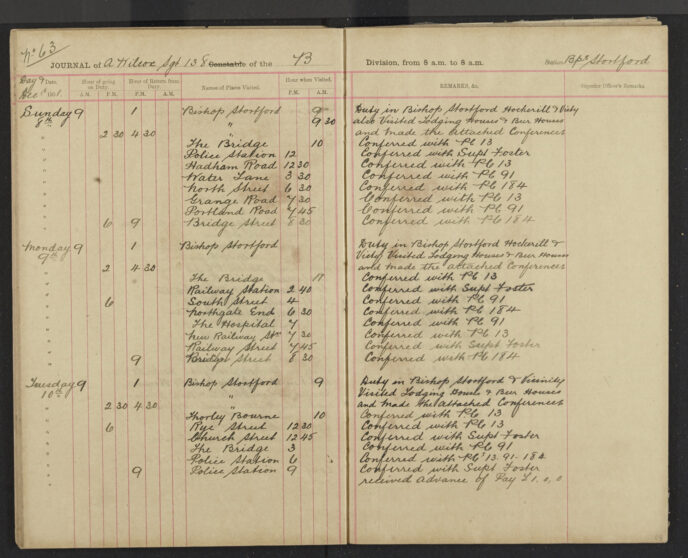 No 63
JOURNAL of A Wilcox Sgt 138 Constable of the B Division, from 8 a.m. to 8 a.m. Station Bps Stortford
Day & Date. Hour of going on Duty. Hour of Return from Duty. Names of Places Visited. Hour when Visited. REMARKS, &c. Superior Officer's Remarks.
A.M. P.M. A.M. P.M. P.M. A.M.
Sunday 9 1 Bishop Stortford 9 Duty in Bishop Stortford Hockerill & Victy
8th " 9 30 also Visited Lodging Houses & Beer Houses
" 2 30 4 30 and made the attached Conferences
" The Bridge 10 Conferred with Pc 13
" Police Station 12 Conferred with Supt Foster
" Hadham Road 12 30 Conferred with Pc 13
" Water Lane 3 30 Conferred with Pc 91
" North Street 6 30 Conferred with Pc 184
" Grange Road 7 30 Conferred with Pc 13
" Portland Road 7 45 Conferred with Pc 91
" 6 9 Bridge Street 8 30 Conferred with Pc 184
Monday 9 1 Bishop Stortford Duty in Bishop Stortford Hockerill &
9th Victy Visited Lodging Houses & Beer Houses
" 2 4 30 and made the attached Conferences
" The Bridge Conferred with Pc 13
" Railway Station 2 40 Conferred with Supt Foster
" 6 South Street 4 Conferred with Pc 91
" Northgate End 6 30 Conferred with Pc 184
" The Hospital 7 Conferred with Pc 91
" New Railway Stn 7 30 Conferred with Pc 13
" Railway Street 7 45 Conferred with Supt Foster
" 9 Bridge Street 8 30 Conferred with Pc 184
Tuesday 9 1 Bishop Stortford 9 Duty in Bishop Stortford & Vicinity
10th " Visited Lodging Houses & Beer Houses
" 2 30 4 30 and made the attached Conferences
" Thorley Bourne 10 Conferred with Pc 13
" 6 Rye Street 12 30 Conferred with Pc 13
" Church Street 12 45 Conferred with Supt Foster
" The Bridge 3 Conferred with Pc 91
" Police Station 6 Conferred with Pc 13. 91. 184
" 9 Police Station 9 Conferred with Supt Foster
received Advance of Pay £1, 0, 0